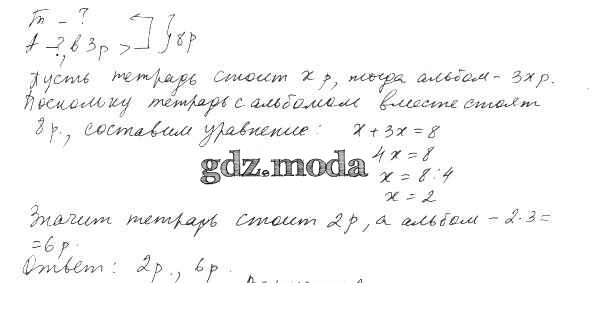 Т – ?
А – ?, в 3р > } 8р
Пусть тетрадь стоит x р, тогда альбом – 3x р.
Поскольку тетрадь с альбомом вместе стоят
8 р., составим уравнение: x + 3x = 8
4x = 8
gdz.moda
x = 8 : 4
x = 2
Значит тетрадь стоит 2 р, а альбом – 2·3 =
= 6 р.
Ответ: 2р., 6р.